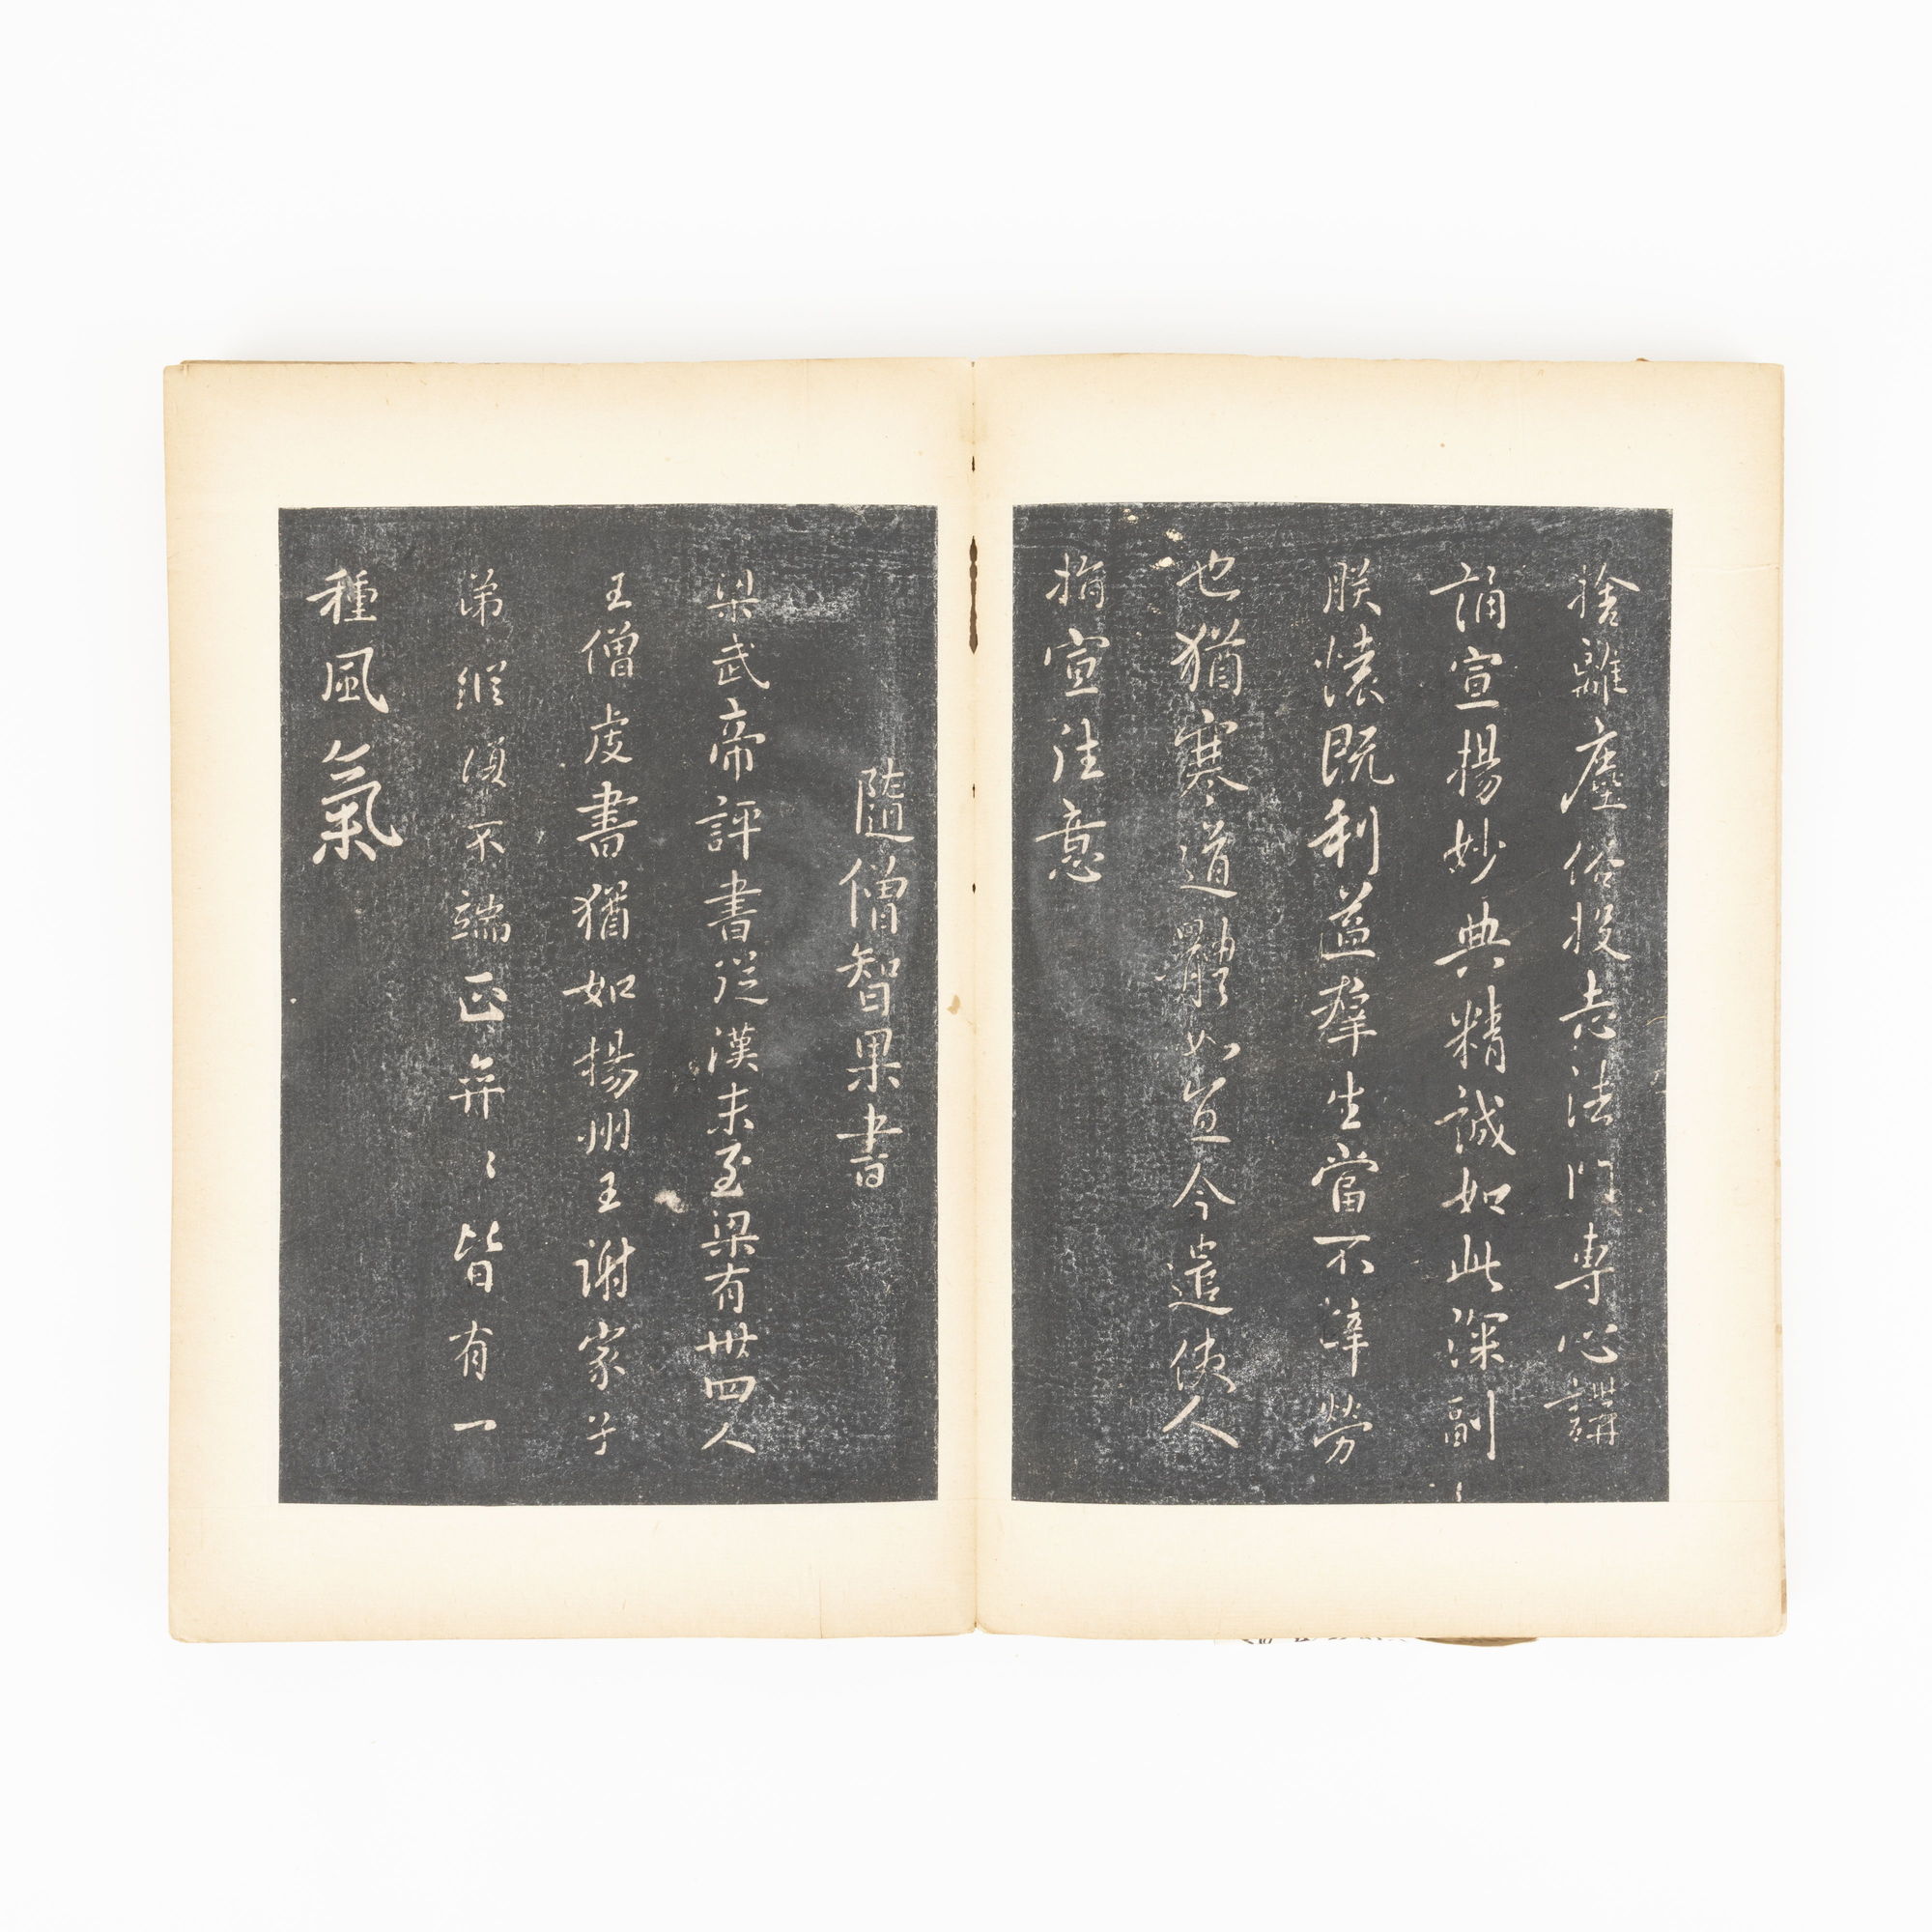 捨離塵俗投志法門專心講
誦宣揚妙典精誠如此深副
朕懷既利益羣生當不憚勞
也猶寒道體如宜今遣使人
指宣往意
隨僧智果書
梁武帝評書從漢末至梁有卅四人
王僧虔書猶如揚州王謝家子
弟縱須不端正弈〻皆有一
種風氣